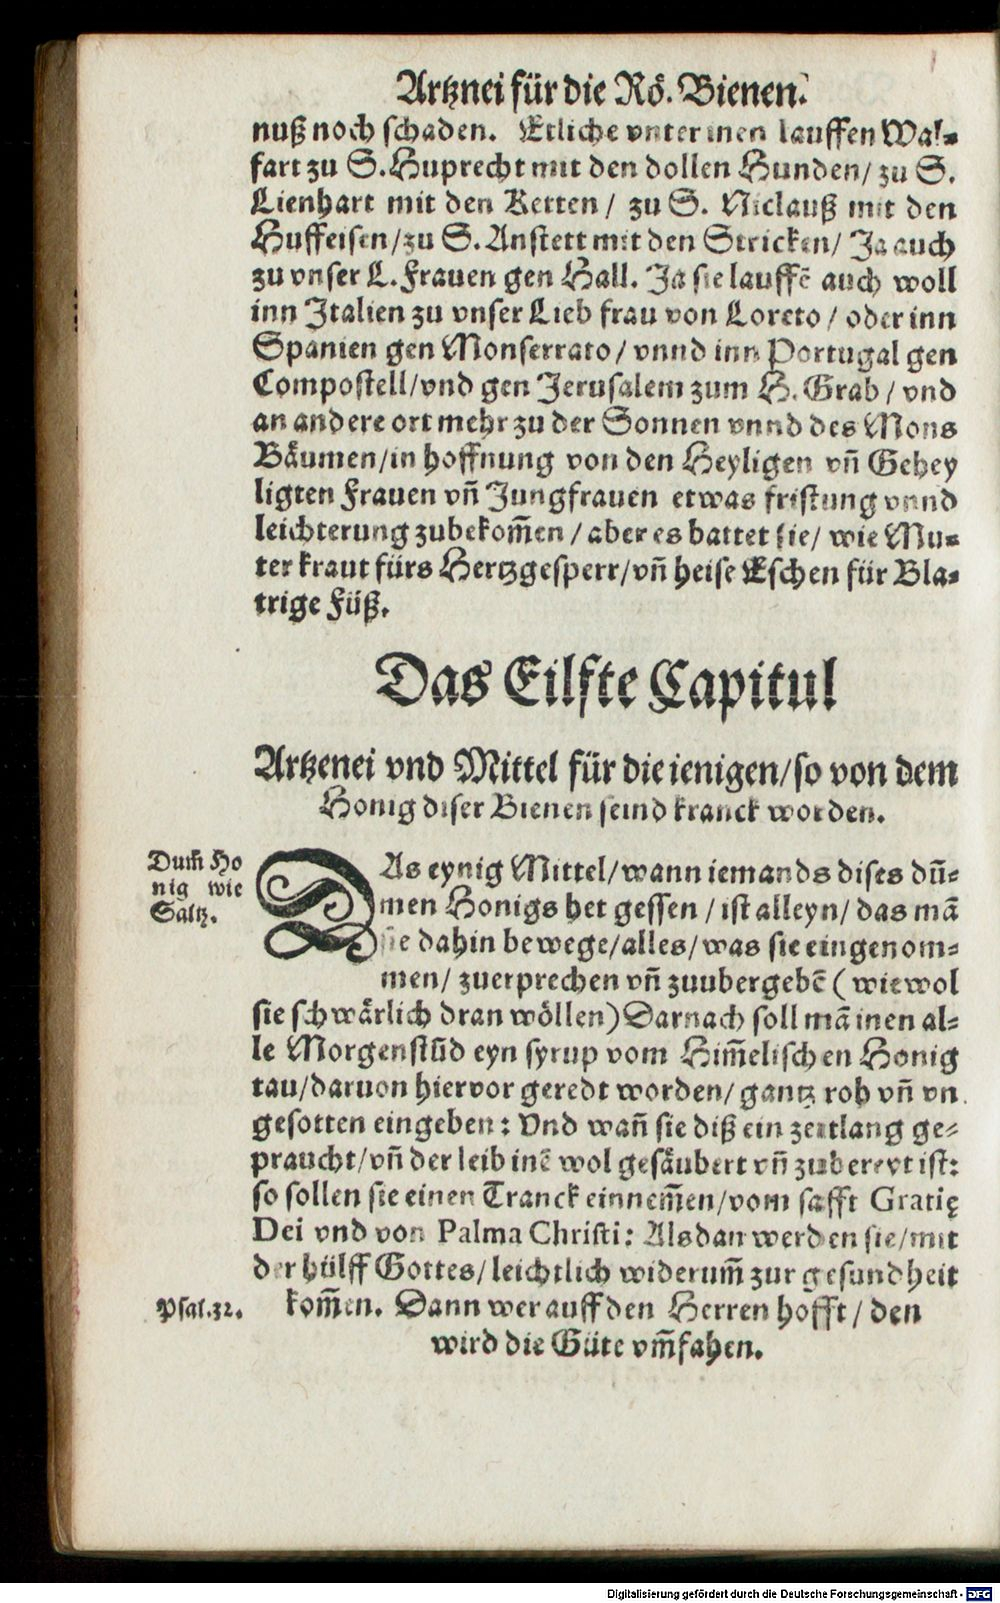 Artznei für die Rö. Bienen.
nuß noch schaden. Etliche vnter inen lauffen Wal-
fart zu S. Huprecht mit den dollen Hunden/ zu S.
Lienhart mit den Ketten / zu S. Niclauß mit den
Huffeisen/zu S. Anstett mit den Stricken/ Ja auch
zu vnser L. Frauen gen Hall. Ja sie lauffē auch woll
inn Italien zu vnser Lieb frau von Loreto / oder inn
Spanien gen Monserrato/ vnnd inn Portugal gen
Compostell/vnd gen Jerusalem zum H. Grab / vnd
an andere ort mehr zu der Sonnen vnnd des Mons
Bäumen/in hoffnung von den Heyligen vñ Gehey
ligten Frauen vñ Jungfrauen etwas fristung vnnd
leichterung zubekom̃en / aber es battet sie/ wie Mu-
ter kraut fürs Hertzgesperr/vñ heise Eschen für Bla-
trige Füß.
Das Eilfte Capitul
Artzenei vnd Mittel für die ienigen/so von dem
Honig diser Bienen seind kranck worden.
Dum̃ Ho
nig wie
Saltz.
DAs eynig Mittel/wann iemands dises dũ-
men Honigs het gessen / ist alleyn/ das mā
sie dahin bewege/alles/was sie eingenom-
men/ zuerprechen vñ zuubergebē ( wiewol
sie schwärlich dran wöllen) Darnach soll mā inen al-
le Morgenstũd eyn syrup vom Him̃elischen Honig
tau/daruon hieruor geredt worden/ gantz roh vñ vn
gesotten eingeben: Vnd wañ sie diß ein zeitlang ge-
praucht/vñ der leib inē wol gesäubert vñ zubereyt ist:
so sollen sie einen Tranck einnem̃en/vom safft Gratię
Dei vnd von Palma Christi: Alsdan werden sie/mit
der hülff Gottes/leichtlich widerum̃ zur gesundheit
Psal.32. kom̃en. Dann wer auff den Herren hofft / den
wird die Güte vm̃fahen.
Digitalisierung gefördert durch die Deutsche Forschungsgemeinschaft - DFG